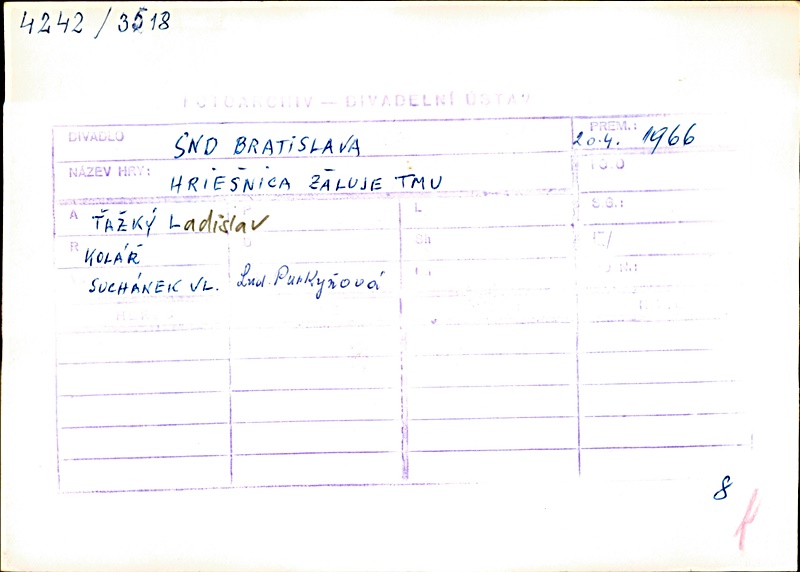 4242 / 3518
FOTOARCHIV — DIVADELNÍ ÚSTAV
DIVADLO SND BRATISLAVA PREM.: 20.4. 1966
NÁZEV HRY: HRIEŠNICA ŽALUJE TMU
A ŤAŽKÝ Ladislav L S.G.:
R KOLÁŘ
SUCHÁNEK VL. Lud. Purkyňová
8